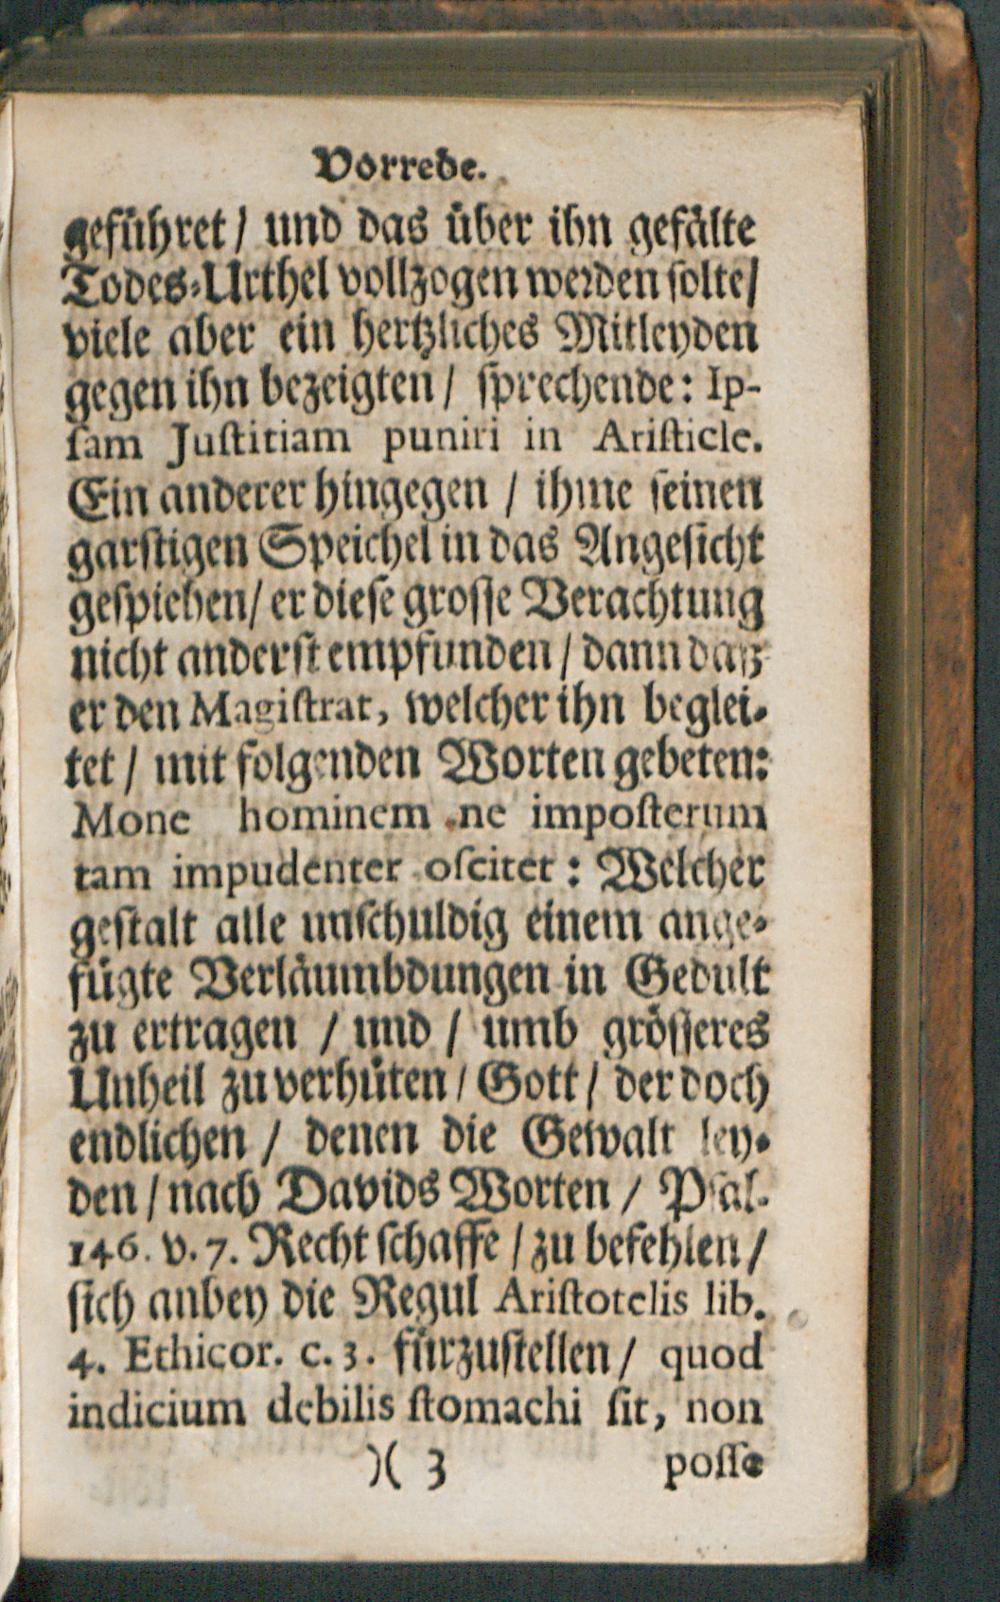 Vorrede.
geführet / und das über ihn gefälte
Todes-Urthel vollzogen werden solte/
viele aber ein hertzliches Mitleyden
gegen ihn bezeigten / sprechende: Ip-
sam Justitiam puniri in Aristicle.
Ein anderer hingegen / ihme seinen
garstigen Speichel in das Angesicht
gespieben/ er diese grosse Verachtung
nicht anderst empfunden / dann daß
er den Magistrat, welcher ihn beglei-
tet / mit folgenden Worten gebeten:
Mone hominem ne imposterum
tam impudenter oscitet: Welcher
gestalt alle unschuldig einem ange-
fügte Verläumbdungen in Gedult
zu ertragen / und / umb grösseres
Unheil zu verhüten / Gott / der doch
endlichen / denen die Gewalt ley-
den / nach Davids Worten / Psal.
146. v. 7. Recht schaffe / zu befehlen /
sich anbey die Regul Aristotelis lib.
4. Ethicor. c. 3. fürzustellen / quod
indicium debilis stomachi sit, non
)( 3 posse